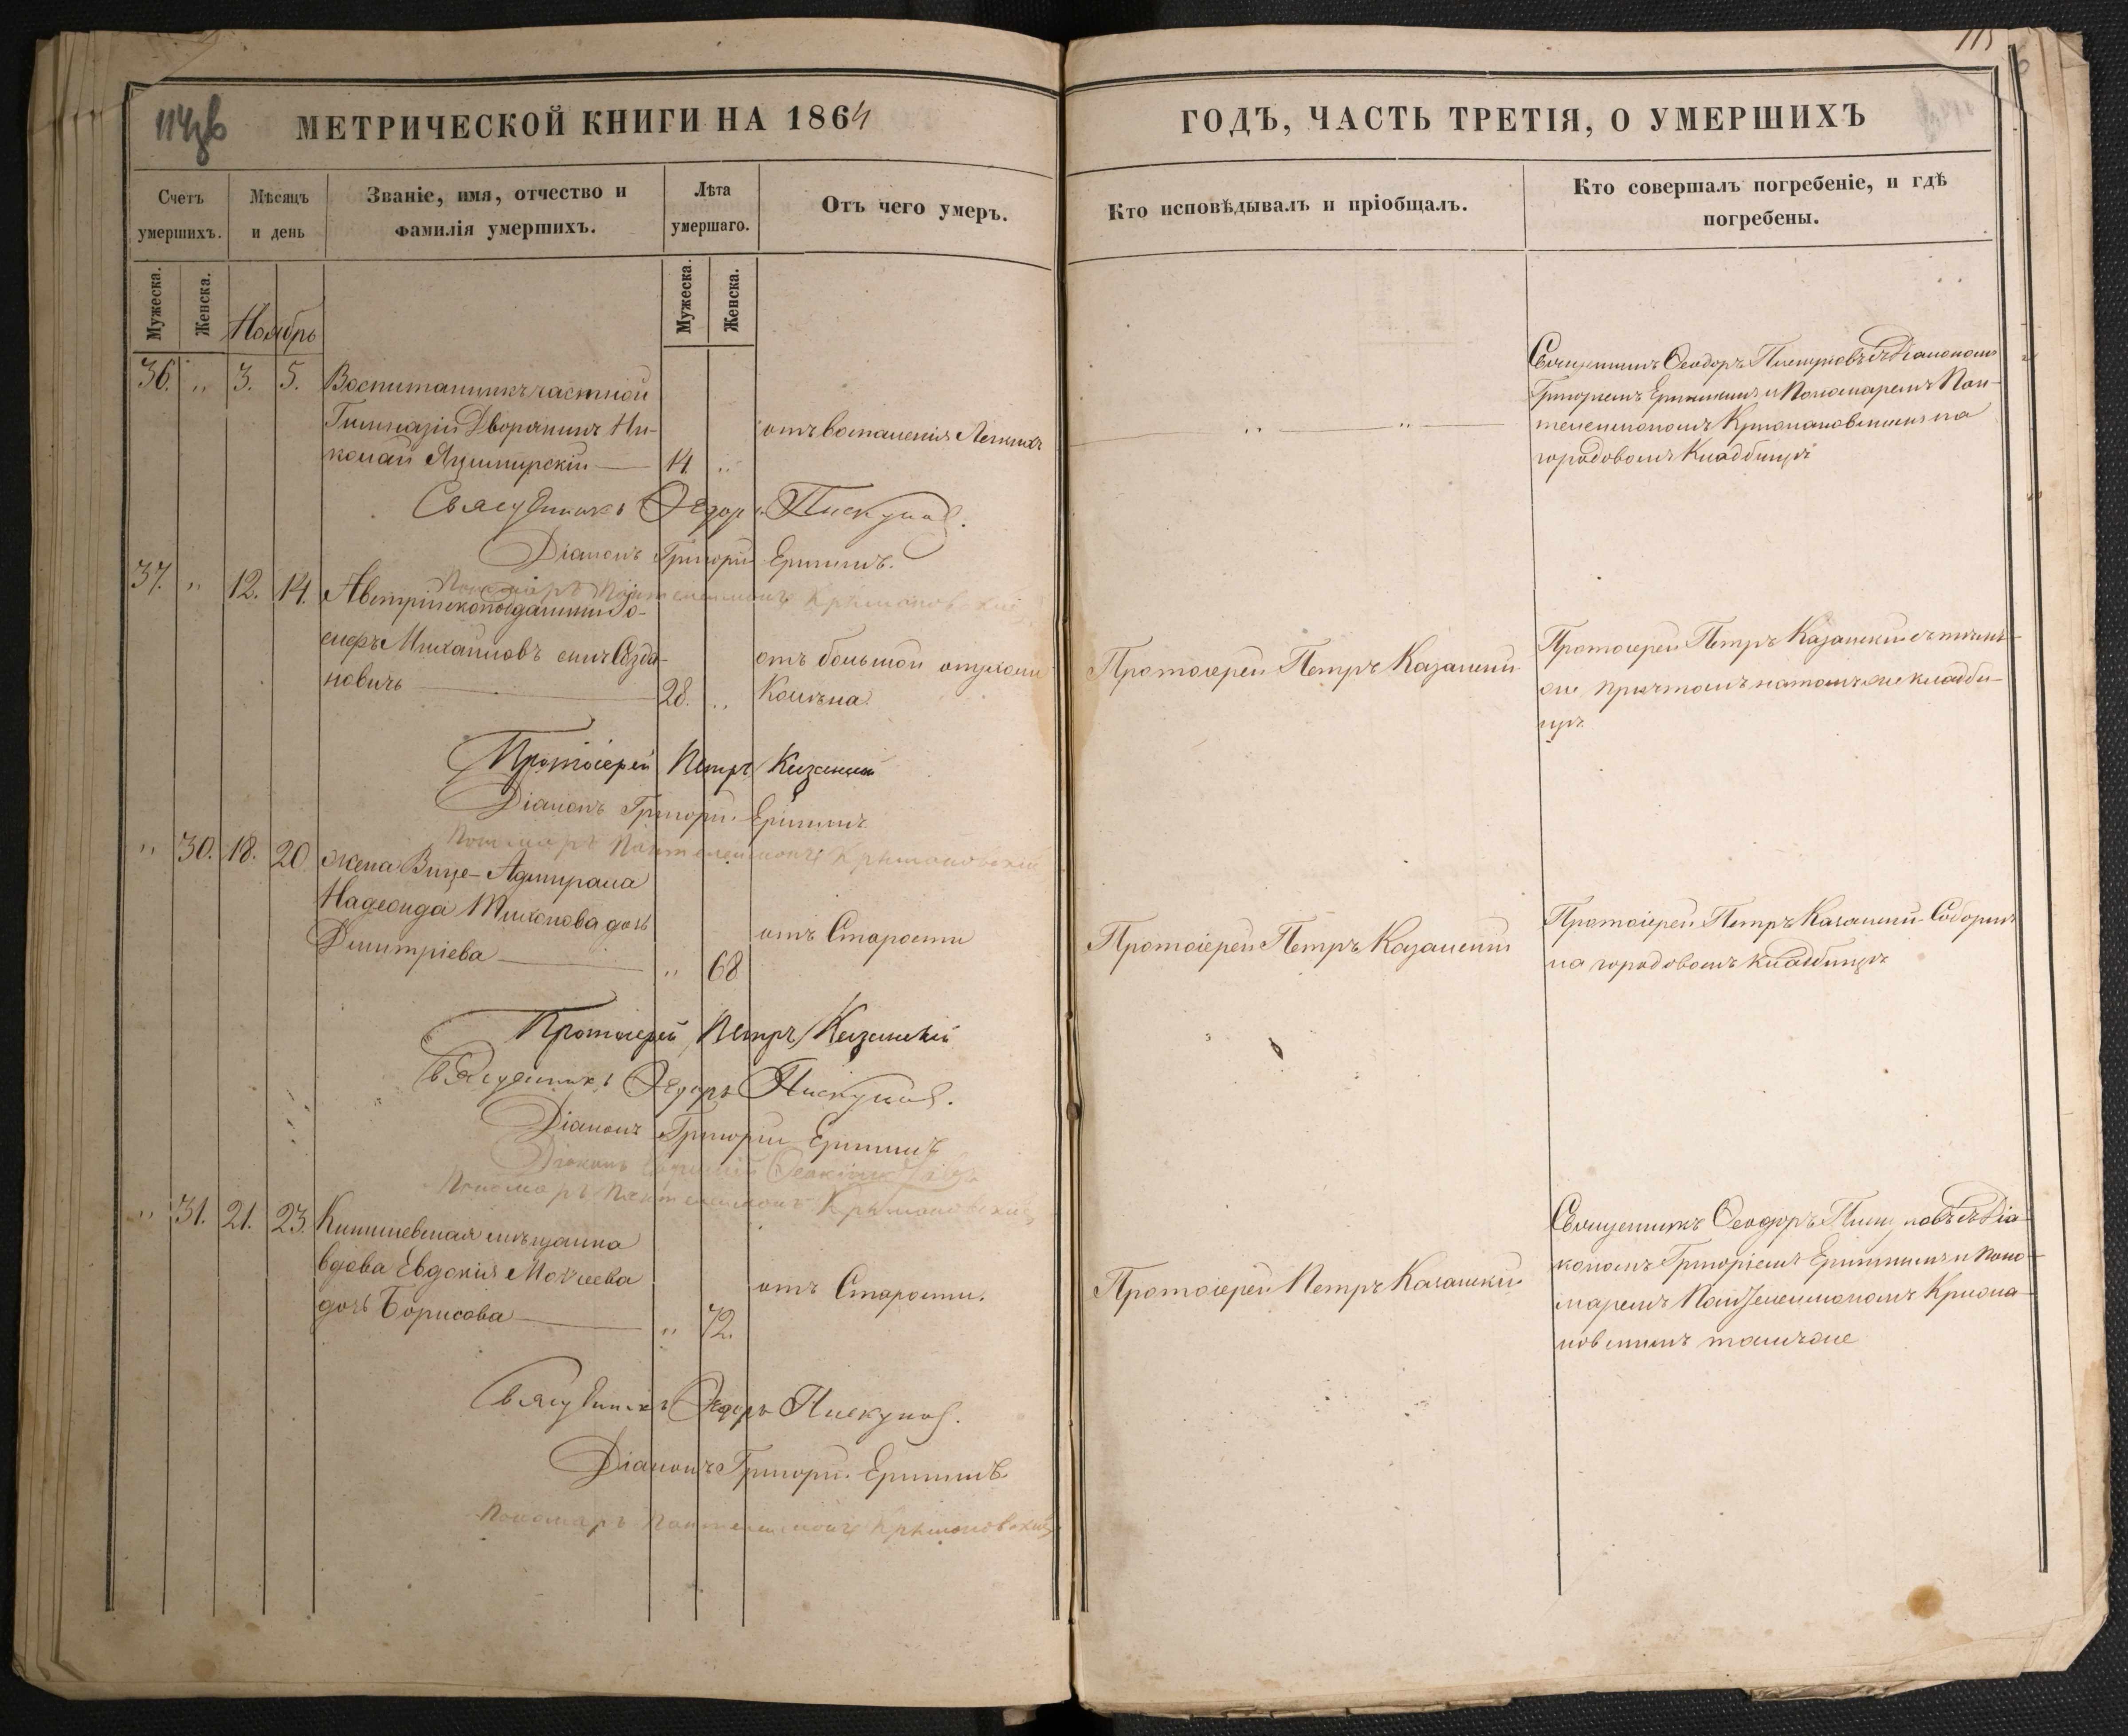 114об
МЕТРИЧЕСКОЙ КНИГИ НА 1864
Счетъ умершихъ.
Мѣсяцъ и день
Званіе, имя, отчество и фамилія умершихъ.
Лѣта умершаго.
Отъ чего умеръ.
Мужеска.
Женска.
Ноябрь
Мужеска.
Женска.
36. " 3. 5. Воспитанникъ частной
Гимназіи Дворянинъ Ни-
колай
14. "
отъ воспаленія Легкихъ
Священникъ Ѳедоръ Пискуновъ.
Діаконъ Григорій
Пономарь Пантелеимонъ
37. " 12. 14. Австрійскоподданный Іо-
сифъ Михайловъ сынъ
новичь
28. "
отъ большой опухоли
Колѣна.
Протоіерей Петръ Казанскій
Діаконъ Григорій
Пономарь Пантелеимонъ
" 30. 18. 20. жена Вице-Адмирала
Надежда Тихонова дочь
Дмитріева
" 68
отъ Старости
Протоіерей Петръ Казанскій
Священникъ Ѳедоръ Пискуновъ.
Діаконъ Григорій
Пономарь Пантелеимонъ
" 31. 21. 23. Кишиневская мѣщанка
вдова Евдокія Моѵсеева
дочь Борисова
" 72.
отъ Старости.
Священникъ Ѳедоръ Пискуновъ.
Діаконъ Григорій
Пономарь Пантелеимонъ
115
ГОДЪ, ЧАСТЬ ТРЕТІЯ, О УМЕРШИХЪ
Кто исповѣдывалъ и пріобщалъ.
Кто совершалъ погребеніе, и гдѣ погребены.
" "
Священникъ Ѳеодоръ Пискуновъ съ Діакономъ
Григоріемъ и Пономаремъ Пан-
телеимономъ на
городовомъ Кладбищѣ
Протоіерей Петръ Казанскій
Протоіерей Петръ Казанскій съ тѣмъ-
же причтомъ на томъ же кладби-
щѣ
Протоіерей Петръ Казанскій
Протоіерей Петръ Казанскій Соборнѣ
на городовомъ кладбищѣ
Протоіерей Петръ Казанскій
Священникъ Ѳеодоръ Пискуновъ съ Діа-
кономъ Григоріемъ и Поно-
маремъ Пантелеимономъ
тамъ же